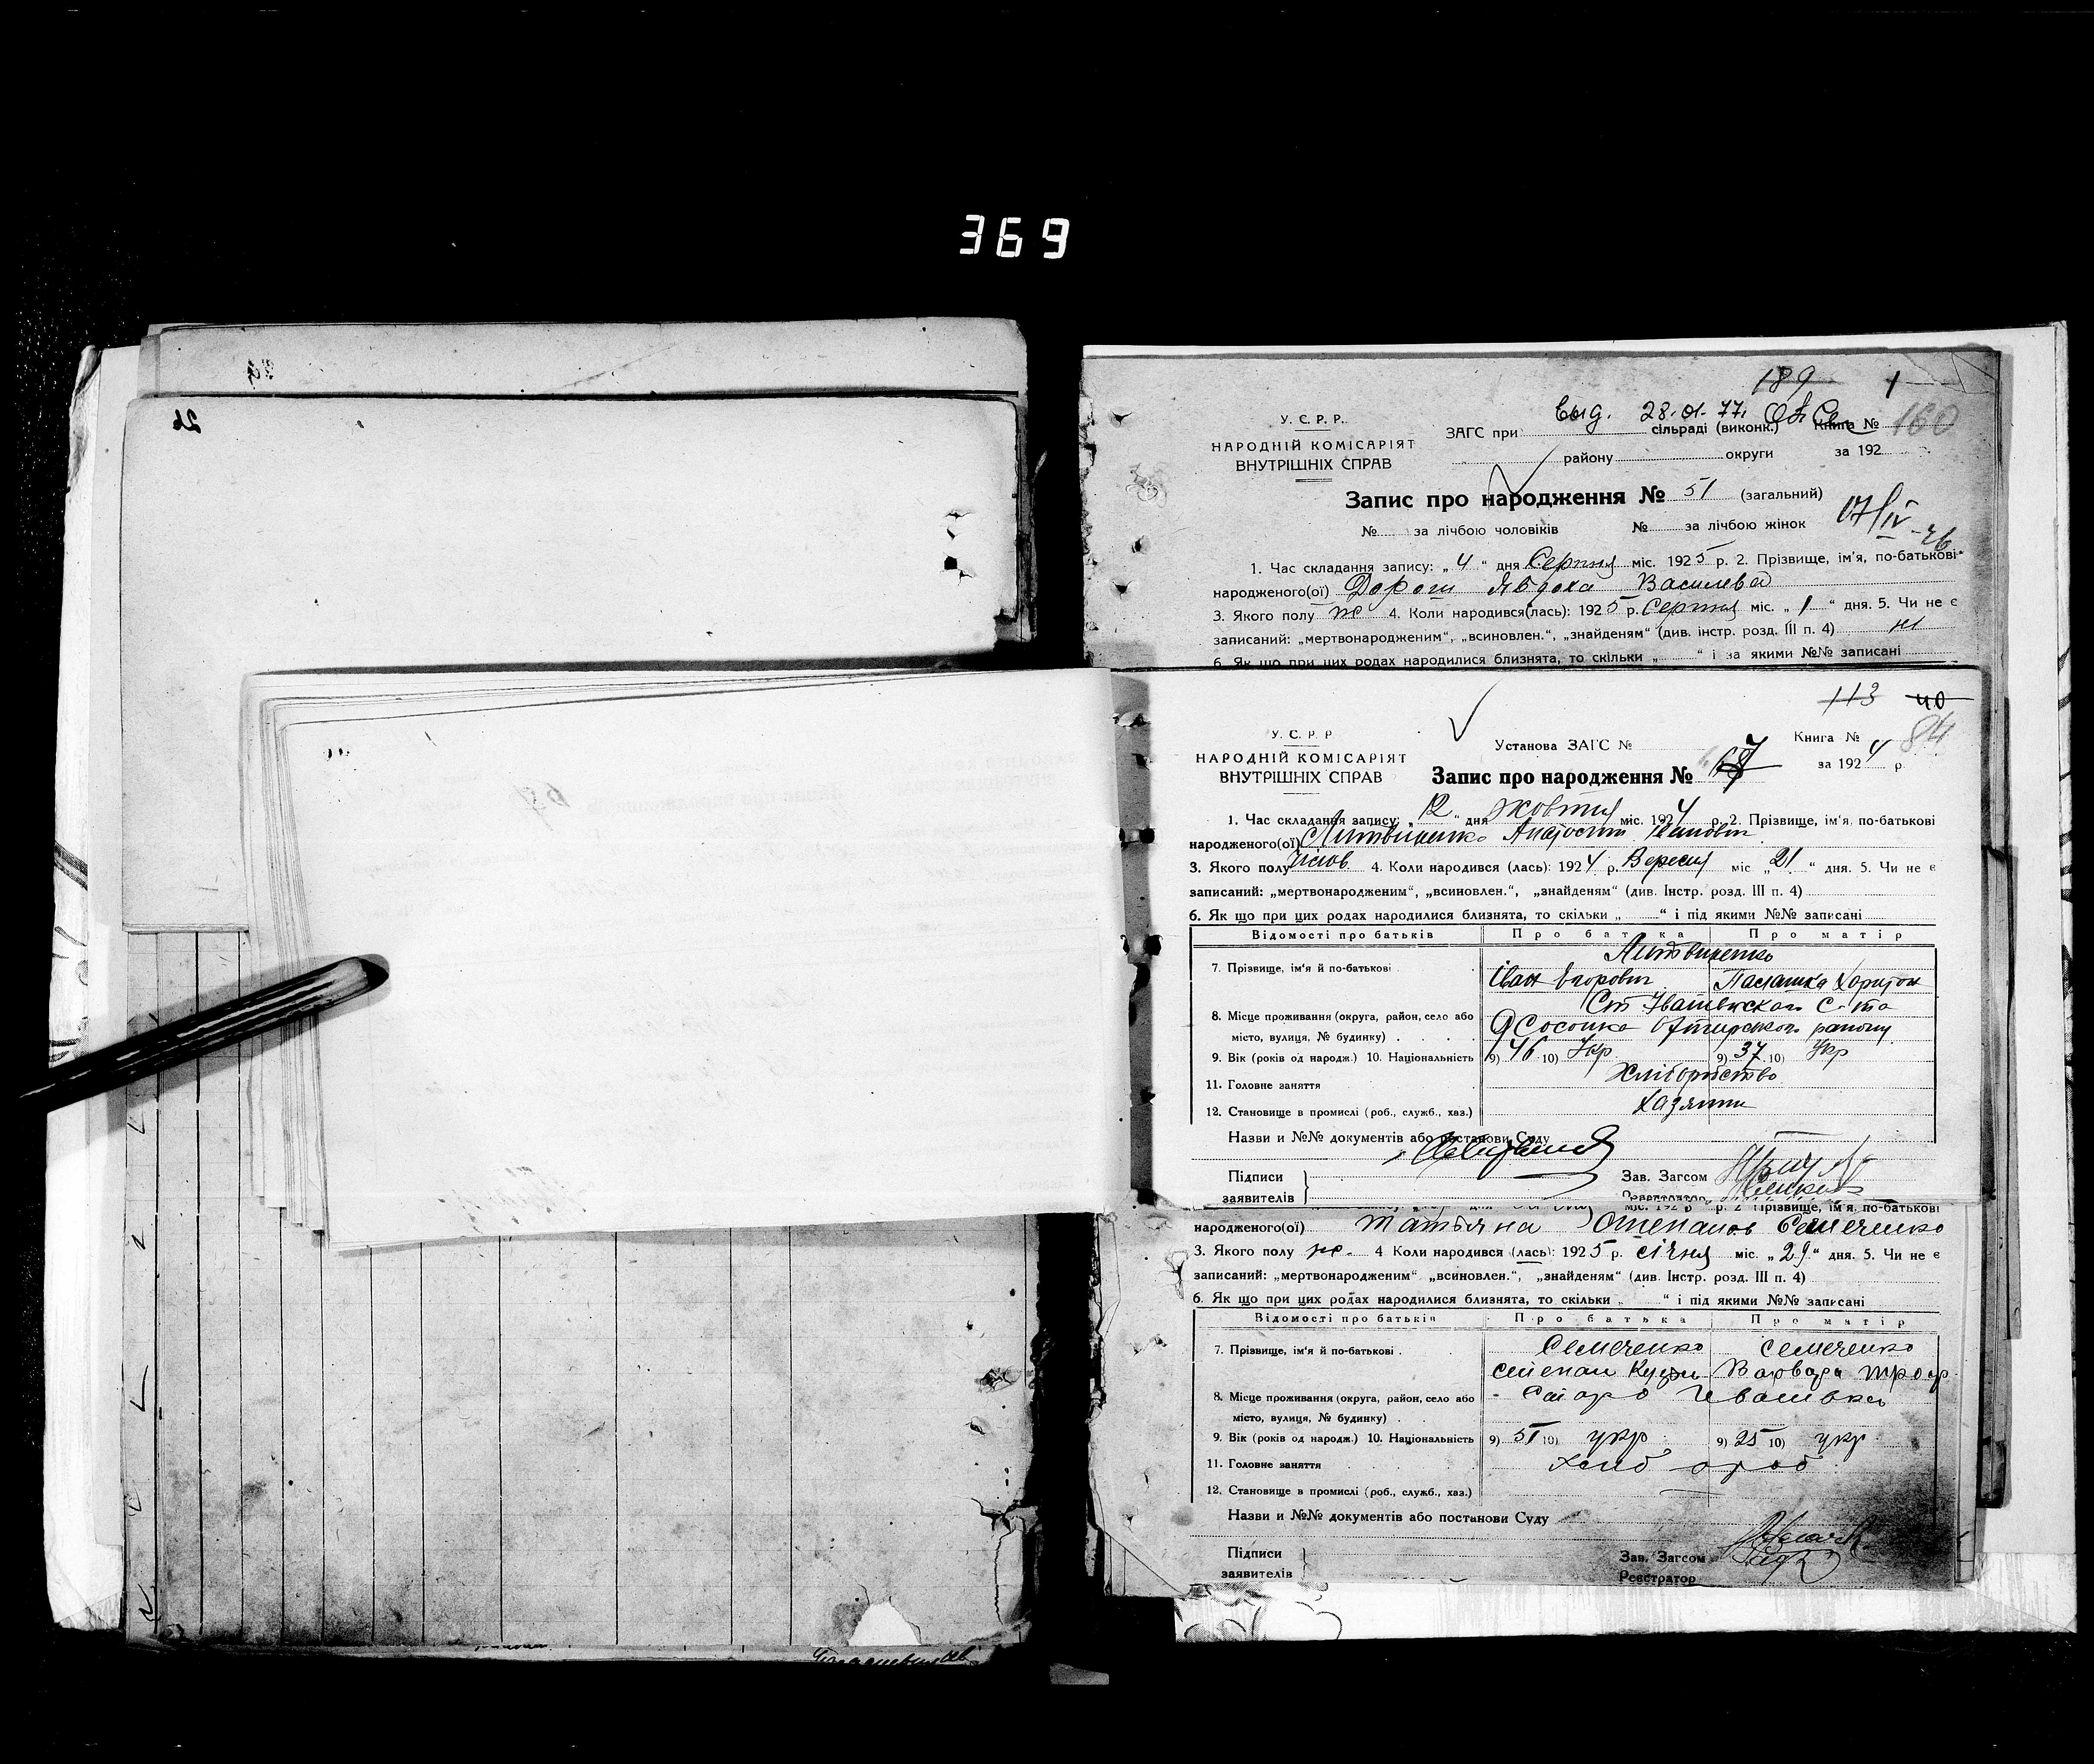 369
26
189 1
выд. 28.01.77.
160
У. С. Р. Р.
НАРОДНІЙ КОМІСАРІЯТ
ВНУТРІШНІХ СПРАВ
ЗАГС при сільраді (виконк.) Книга №
району округи за 192
Запис про народження № 51 (загальний)
№ за лічбою чоловіків № за лічбою жінок
1. Час складання запису: „ 4 “ дня Серпня міс. 1925 р. 2. Прізвище, ім'я, по-батькові
народженого(ої) Явдоха Василева
3. Якого полу ж 4. Коли народився(лась): 1925 р. Серпня міс. „ 1 “ дня. 5. Чи не є
записаний: „мертвонародженим“, „всиновлен.“, „знайденям“ (див. інстр. розд. III п. 4) ні
6. Як що при цих родах народилися близнята, то скільки „ “ і за якими №№ записані
113 40
84
У. С. Р. Р
НАРОДНІЙ КОМІСАРІЯТ
ВНУТРІШНІХ СПРАВ
Установа ЗАГС №
Книга №
за 1924 р.
Запис про народження №
1. Час складання запису: „ 12 “ дня жовтня міс. 1924 р. 2. Прізвище, ім'я, по-батькові
народженого(ої) Литвиненко Іванович
3. Якого полу чолов. 4. Коли народився (лась): 1924 р. Вересня міс „ 21 “ дня. 5. Чи не є
записаний: „мертвонародженим“, „всиновлен.“, „знайденям“ (див. Інстр. розд. III п. 4)
6. Як що при цих родах народилися близнята, то скільки „ “ і під якими №№ записані
Відомості про батьків Про батька Про матір
Литвиненко
7. Прізвище, ім'я й по-батькові Іван Егорович Палашка Харитон
8. Місце проживання (округа, район, село або
місто, вулиця, № будинку) Сосонка району
9. Вік (років од народж.) 10. Національність 9) 46 10) Укр 9) 37 10) Укр
11. Головне заняття Хліборобство
12. Становище в промислі (роб., служб., хаз.) хазяїни
Назви и №№ документів або постанови Суду
Підписи
заявителів
Зав. Загсом
Реєстратор
міс. 192 р. 2 Прізвище, ім'я, по-батькові
народженого(ої) Татьяна Степанов Семеченко
3. Якого полу ж. 4 Коли народився (лась): 1925 р. січня міс. „ 29 “ дня. 5. Чи не є
записаний: „мертвонародженим“ „всиновлен.“, „знайденям“ (див. Інстр. розд. III п. 4)
6. Як що при цих родах народилися близнята, то скільки „ “ і під якими №№ записані
Відомості про батьків Про батька Про матір
Семеченко Семеченко
7. Прізвище, ім'я й по-батькові Степан Варвара
8. Місце проживання (округа, район, село або Старо Івановка
місто, вулиця, № будинку)
9. Вік (років од народж.) 10. Національність 9) 51 10) укр 9) 25 10) укр
11. Головне заняття хліб ороб
12. Становище в промислі (роб., служб., хаз.)
Назви и №№ документів або постанови Суду
Підписи
заявителів
Зав. Загсом
Реєстратор